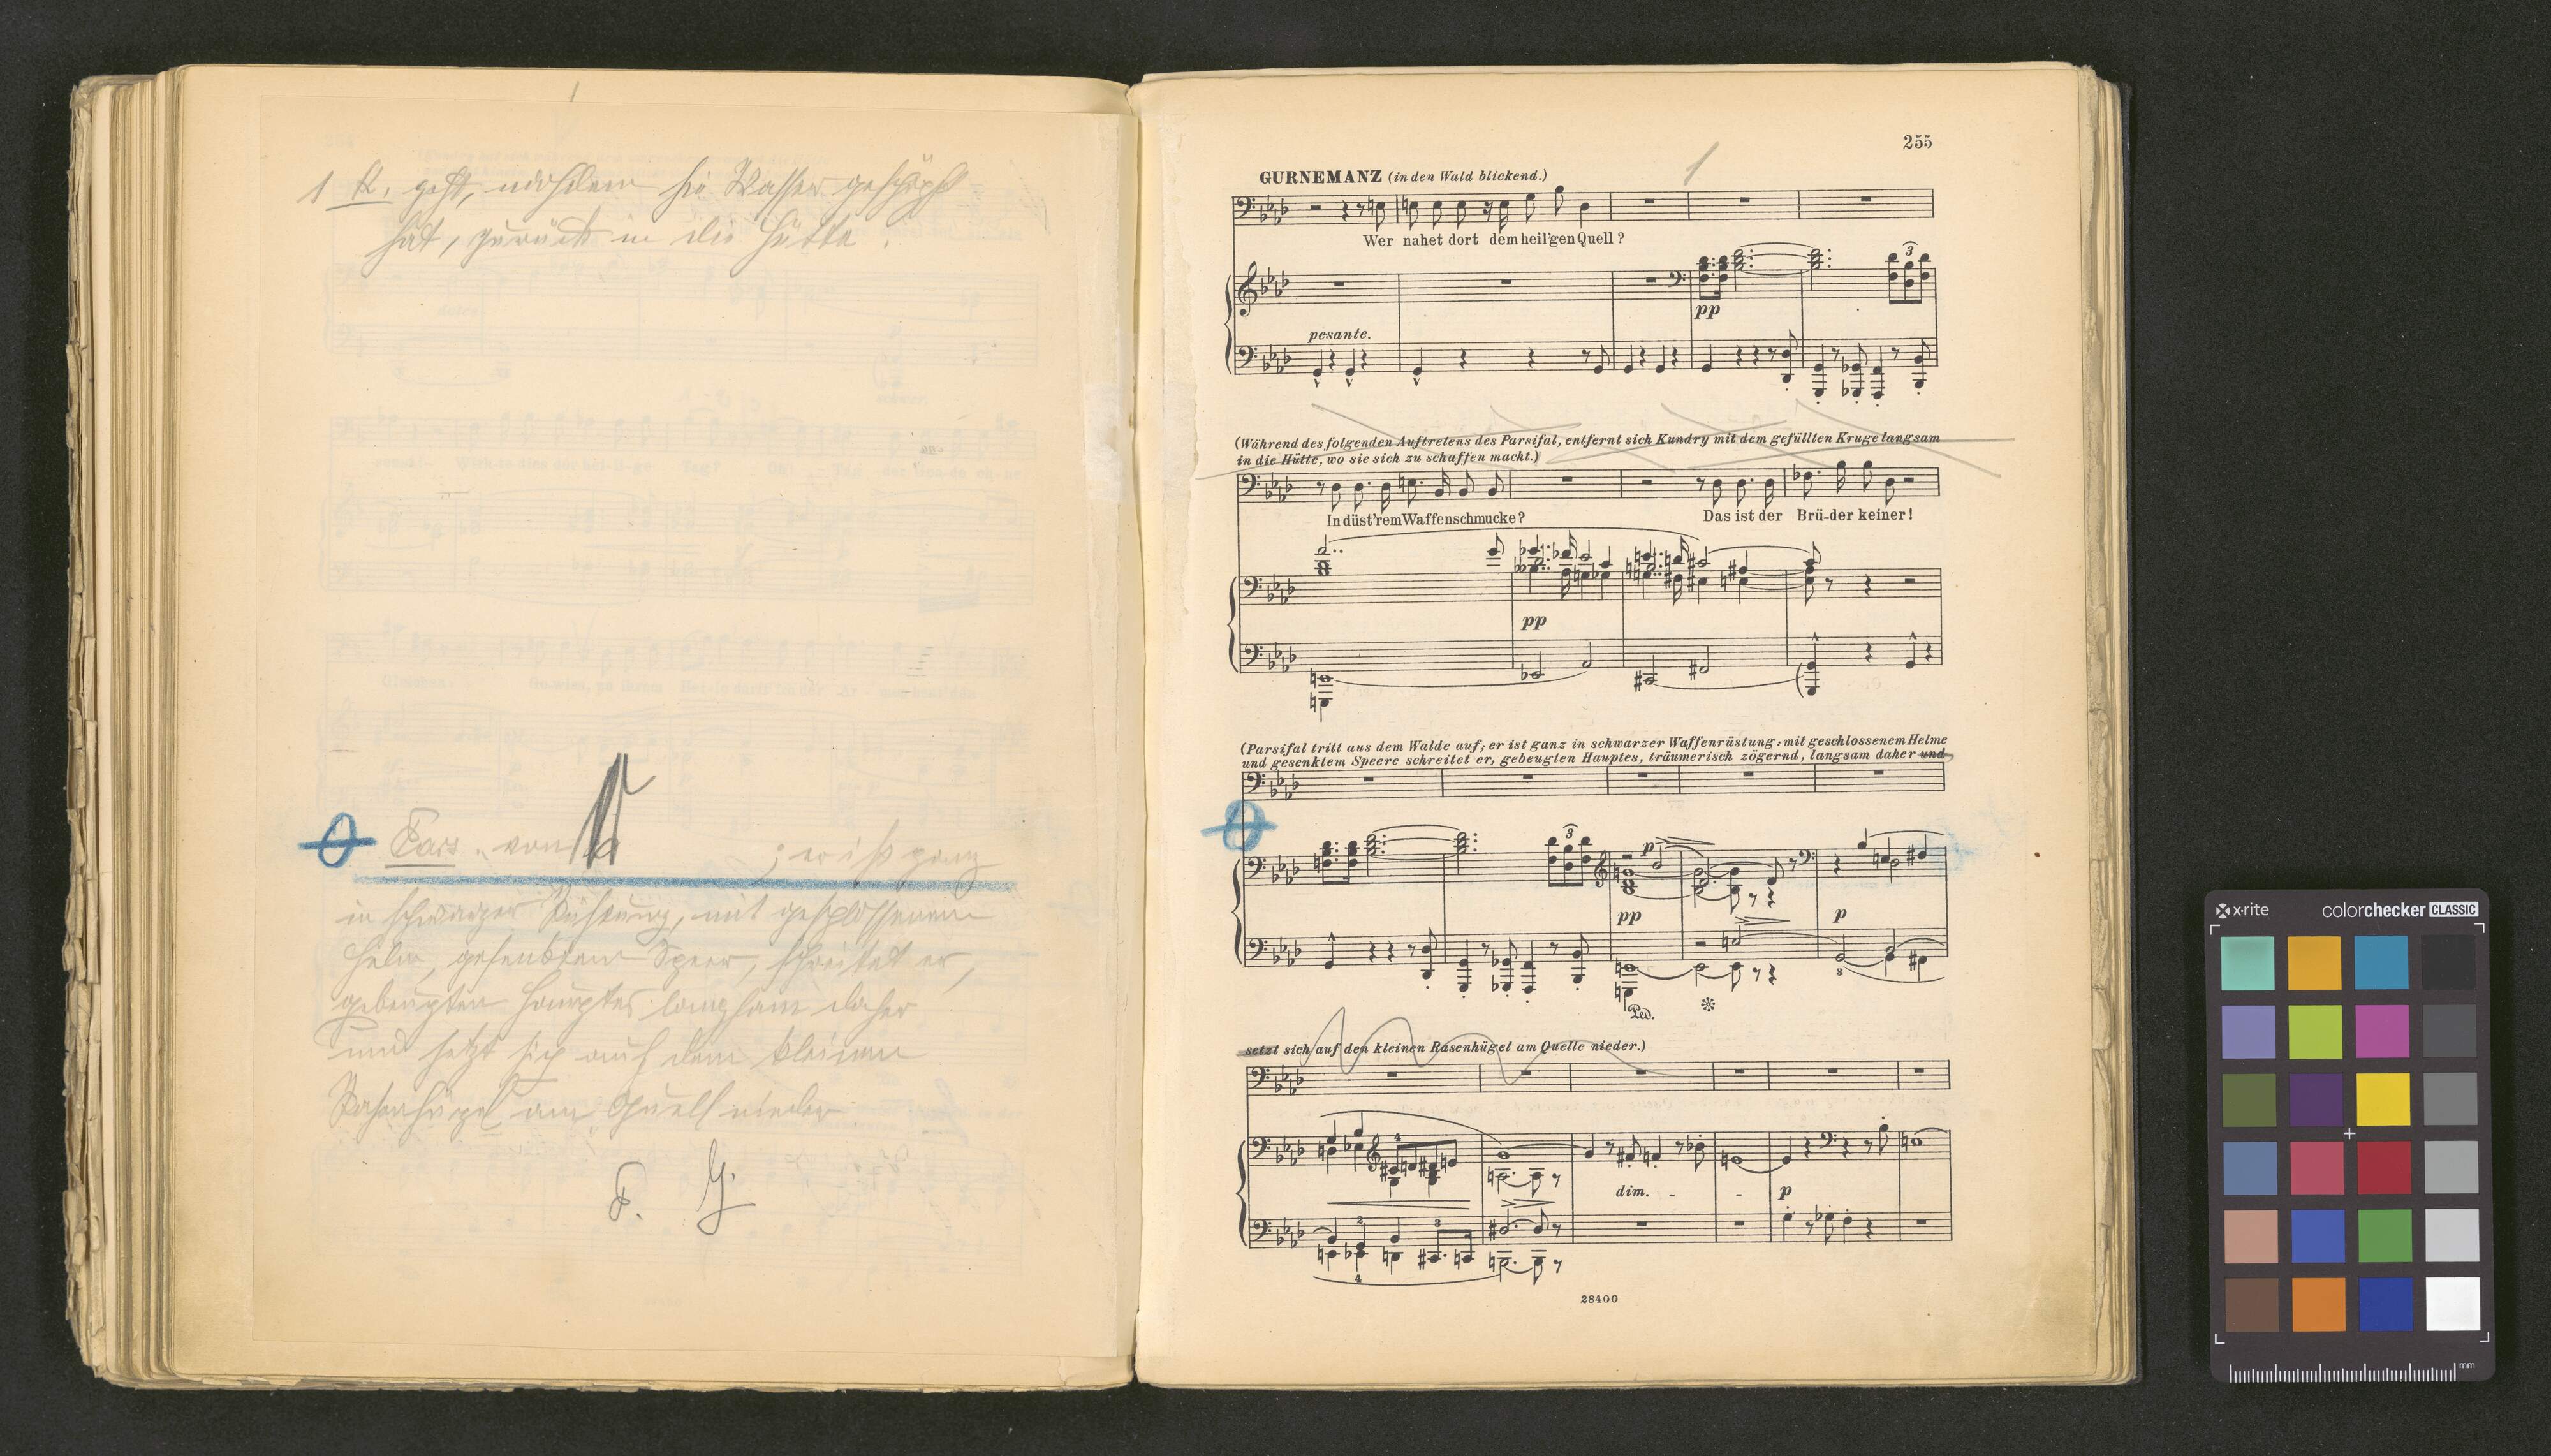 1 K. geht, nachdem sie Wasser geschöpft
hat, zurück in die Hütte.
Pars. von ; er ist ganz
in schwarzer Rüstung, mit geschlossenem
Helm, gesenktem Speer, schreitet er,
gebeugten Hauptes langsam daher
und setzt sich auf dem kleinen
Rasenhügel am Quell nieder
P. G.
255
1
GURNEMANZ (in den Wald blickend.)
Wer nahet dort dem heil'gen Quell?
3
pp
pesante.
(Während des folgenden Auftretens des Parsifal, entfernt sich Kundry mit dem gefüllten Kruge langsam
in die Hütte, wo sie sich zu schaffen macht.)
In düst'rem Waffenschmucke? Das ist der Brü-der keiner!
pp
(Parsifal tritt aus dem Walde auf; er ist ganz in schwarzer Waffenrüstung: mit geschlossenem Helme
und gesenktem Speere schreitet er, gebeugten Hauptes, träumerisch zögernd, langsam daher und
3 p
pp p
3
Ped.
setzt sich auf den kleinen Rasenhügel am Quelle nieder.)
4
dim. - - p
2 3
4
28400
x-rite colorchecker CLASSIC
mm